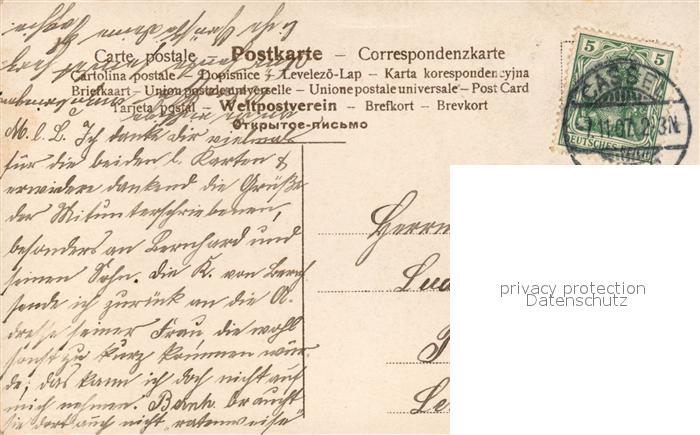 Carte postale – Postkarte – Correspondenzkarte
Cartolina postale – Dopisnice – Levelező-Lap – Karta korespondencyjna
Briefkaart – Union postale universelle – Unione postale universale – Post Card
Tarjeta postal – Weltpostverein – Brefkort – Brevkort
Открытое-письмо
M. l. L. Ich danke Dir vielmals
für die beiden l. Karten &
erwidere dankend die Grüße
der Mitunterschriebenen,
besonders an Bernhard und
seinen Sohn. Die K. von Berch
sende ich zurück an die A-
dresse seiner Frau, die wohl
sonst zu kurz kommen wür-
de; das kann ich doch nicht auf
mich nehmen. Bernh. braucht
sie dort auch nicht "ratenweise"
Herrn
Lud
Le
5 5
CASSEL
7.11.07. 2-3N
DEUTSCHES REICH
privacy protection
Datenschutz